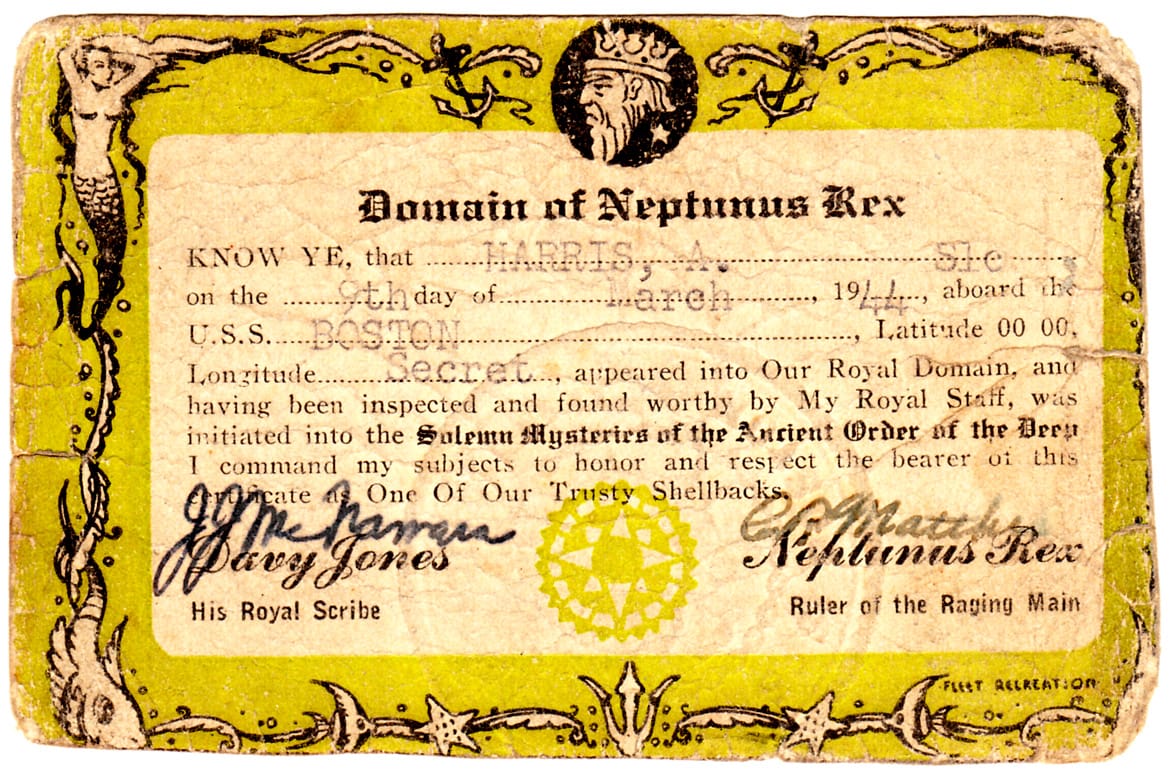 Domain of Neptunus Rex
KNOW YE, that ........HARRIS, A.................S1c........
on the ........9th day of............March............, 1944...., aboard the
U.S.S.....BOSTON........................................, Latitude 00 00,
Longitude........Secret...., appeared into Our Royal Domain, and
having been inspected and found worthy by My Royal Staff, was
initiated into the Solemn Mysteries of the Ancient Order of the Deep
I command my subjects to honor and respect the bearer of this
certificate as One Of Our Trusty Shellbacks.
J J McNamara
Davy Jones
His Royal Scribe
Matthews
Neptunus Rex
Ruler of the Raging Main
FLEET RECREATION